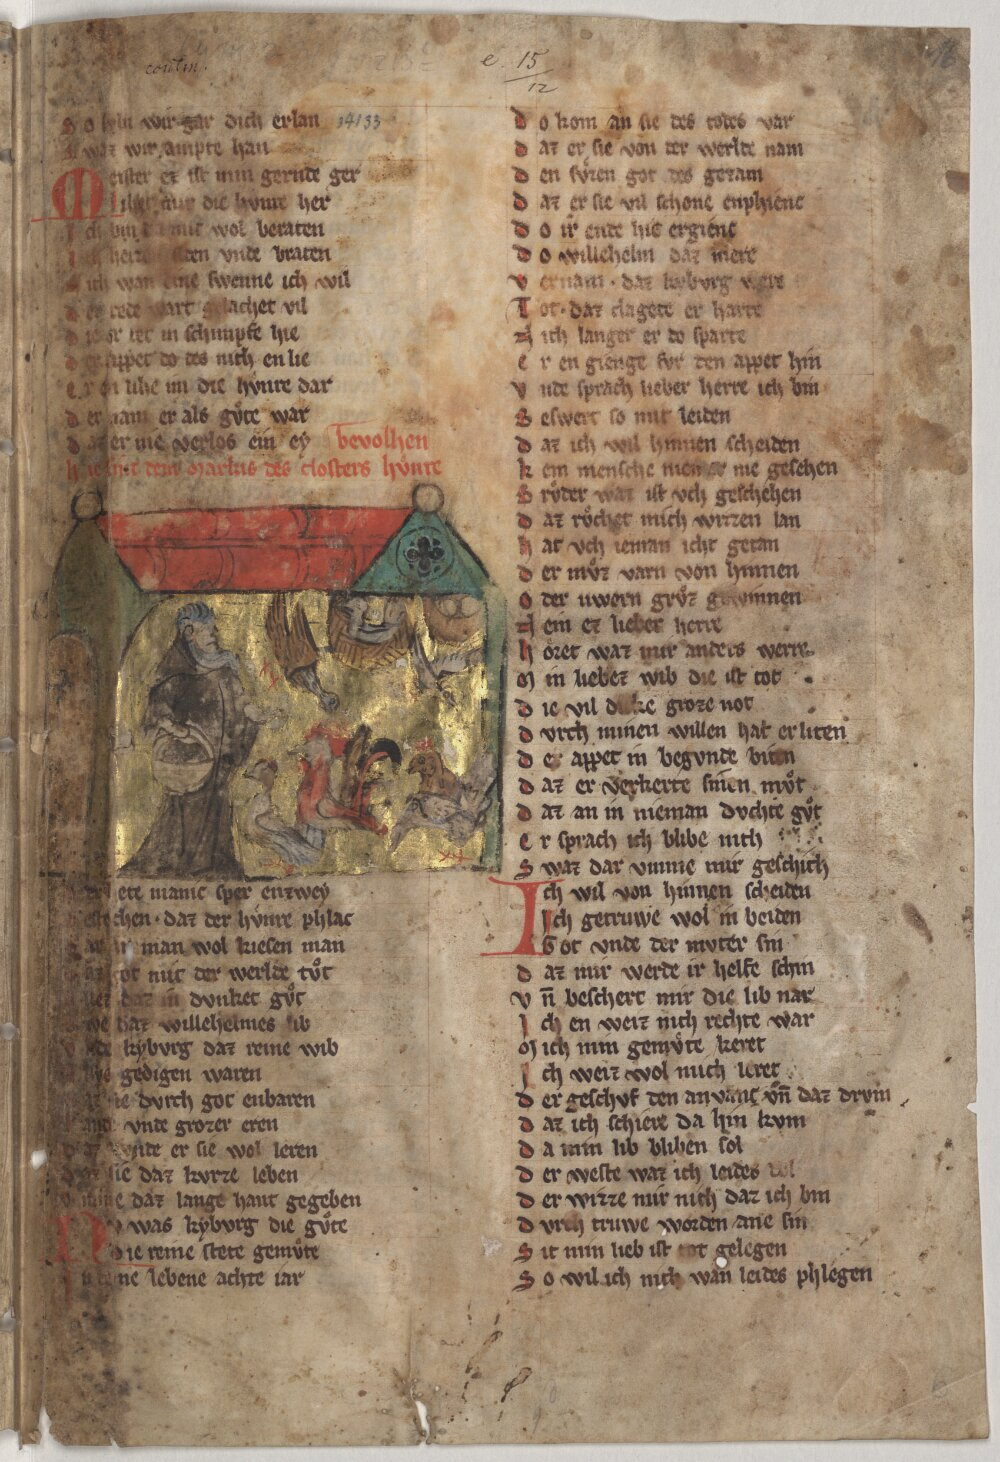 contin.
e. 15
12
16
So suln wir gar dich erlan 34133
Swaz wir ampte han
Meister ez ist min gernde ger
die hvnre her
Ich bin mit wol beraten
sieden vnde braten
ich wan eine swenne ich wil
Der rede wart gelachet vil
Die er tet in schimpfe hie
Der appet do des nich en lie
Er en lihe im die hvnre dar
Der nam er als gůte war
Daz er nie verlos ein ey bevolhen
Hie sint dem Markis des closters hvnre
manic sper enzwey
stechen · daz der hvnre phlac
man wol kiesen man
got mit der werlde tůt
Allez daz in dvnket gůt
Swe daz willehelmes lib
Vnde kybvrg daz reine wib
gedigen waren
sie dvrch got enbaren
vnde grozer eren
vnde er sie wol leren
Daz sie daz kvrze leben
Vmme daz lange hant gegeben
Nv was kybvrg die gůte
Die reine stete gemůte
lebene achte iar
Do kom an sie des todes var
Daz er sie von der werlde nam
Den sůzen got des gezam
Daz er sie vil schone enphienc
Do ir ende hie ergienc
Do willehelm daz mere
Vernam · daz kybvrg were
Tot · daz clagete er harte
Nich langer er do sparte
Er en gienge fvr den appet hin
Vnde sprach lieber herre ich bin
Beswert so mit leiden
Daz ich wil hinnen scheiden
Kein mensche nie gesehen
Brůder waz ist vch geschehen
Daz růchet mich wizzen lan
Hat vch ieman icht getan
Der můz varn von hinnen
Oder uwern grůz gewinnen
Nein ez lieber herre
Horet waz mir anders werre
Min liebez wib die ist tot
Die vil dicke groze not
Dvrch minen willen hat erliten
Der appet in begvnde biten
Daz er verkerte sinen můt
Daz an in nieman dvchte gůt
Er sprach ich blibe nich
Swaz dar vmme mir geschich
Ich wil von hinnen scheiden
Ich getruwe wol in beiden
Got vnde der mvter sin
Daz mir werde ir helfe schin
Vn̄ beschert mir die lib nar
Ich en weiz nich rechte war
Mich min gemůte keret
Ich weiz wol mich leret
Der geschvf den anvanc vn̄ daz drvm
Daz ich schiere da hin kvm
Da min lib bliben sol
Der weste waz ich leides dol
Der wizze mir nich daz ich bin
Dvrch truwe worden ane sin
Sit min lieb ist tot gelegen
So wil ich nich wan leides phlegen